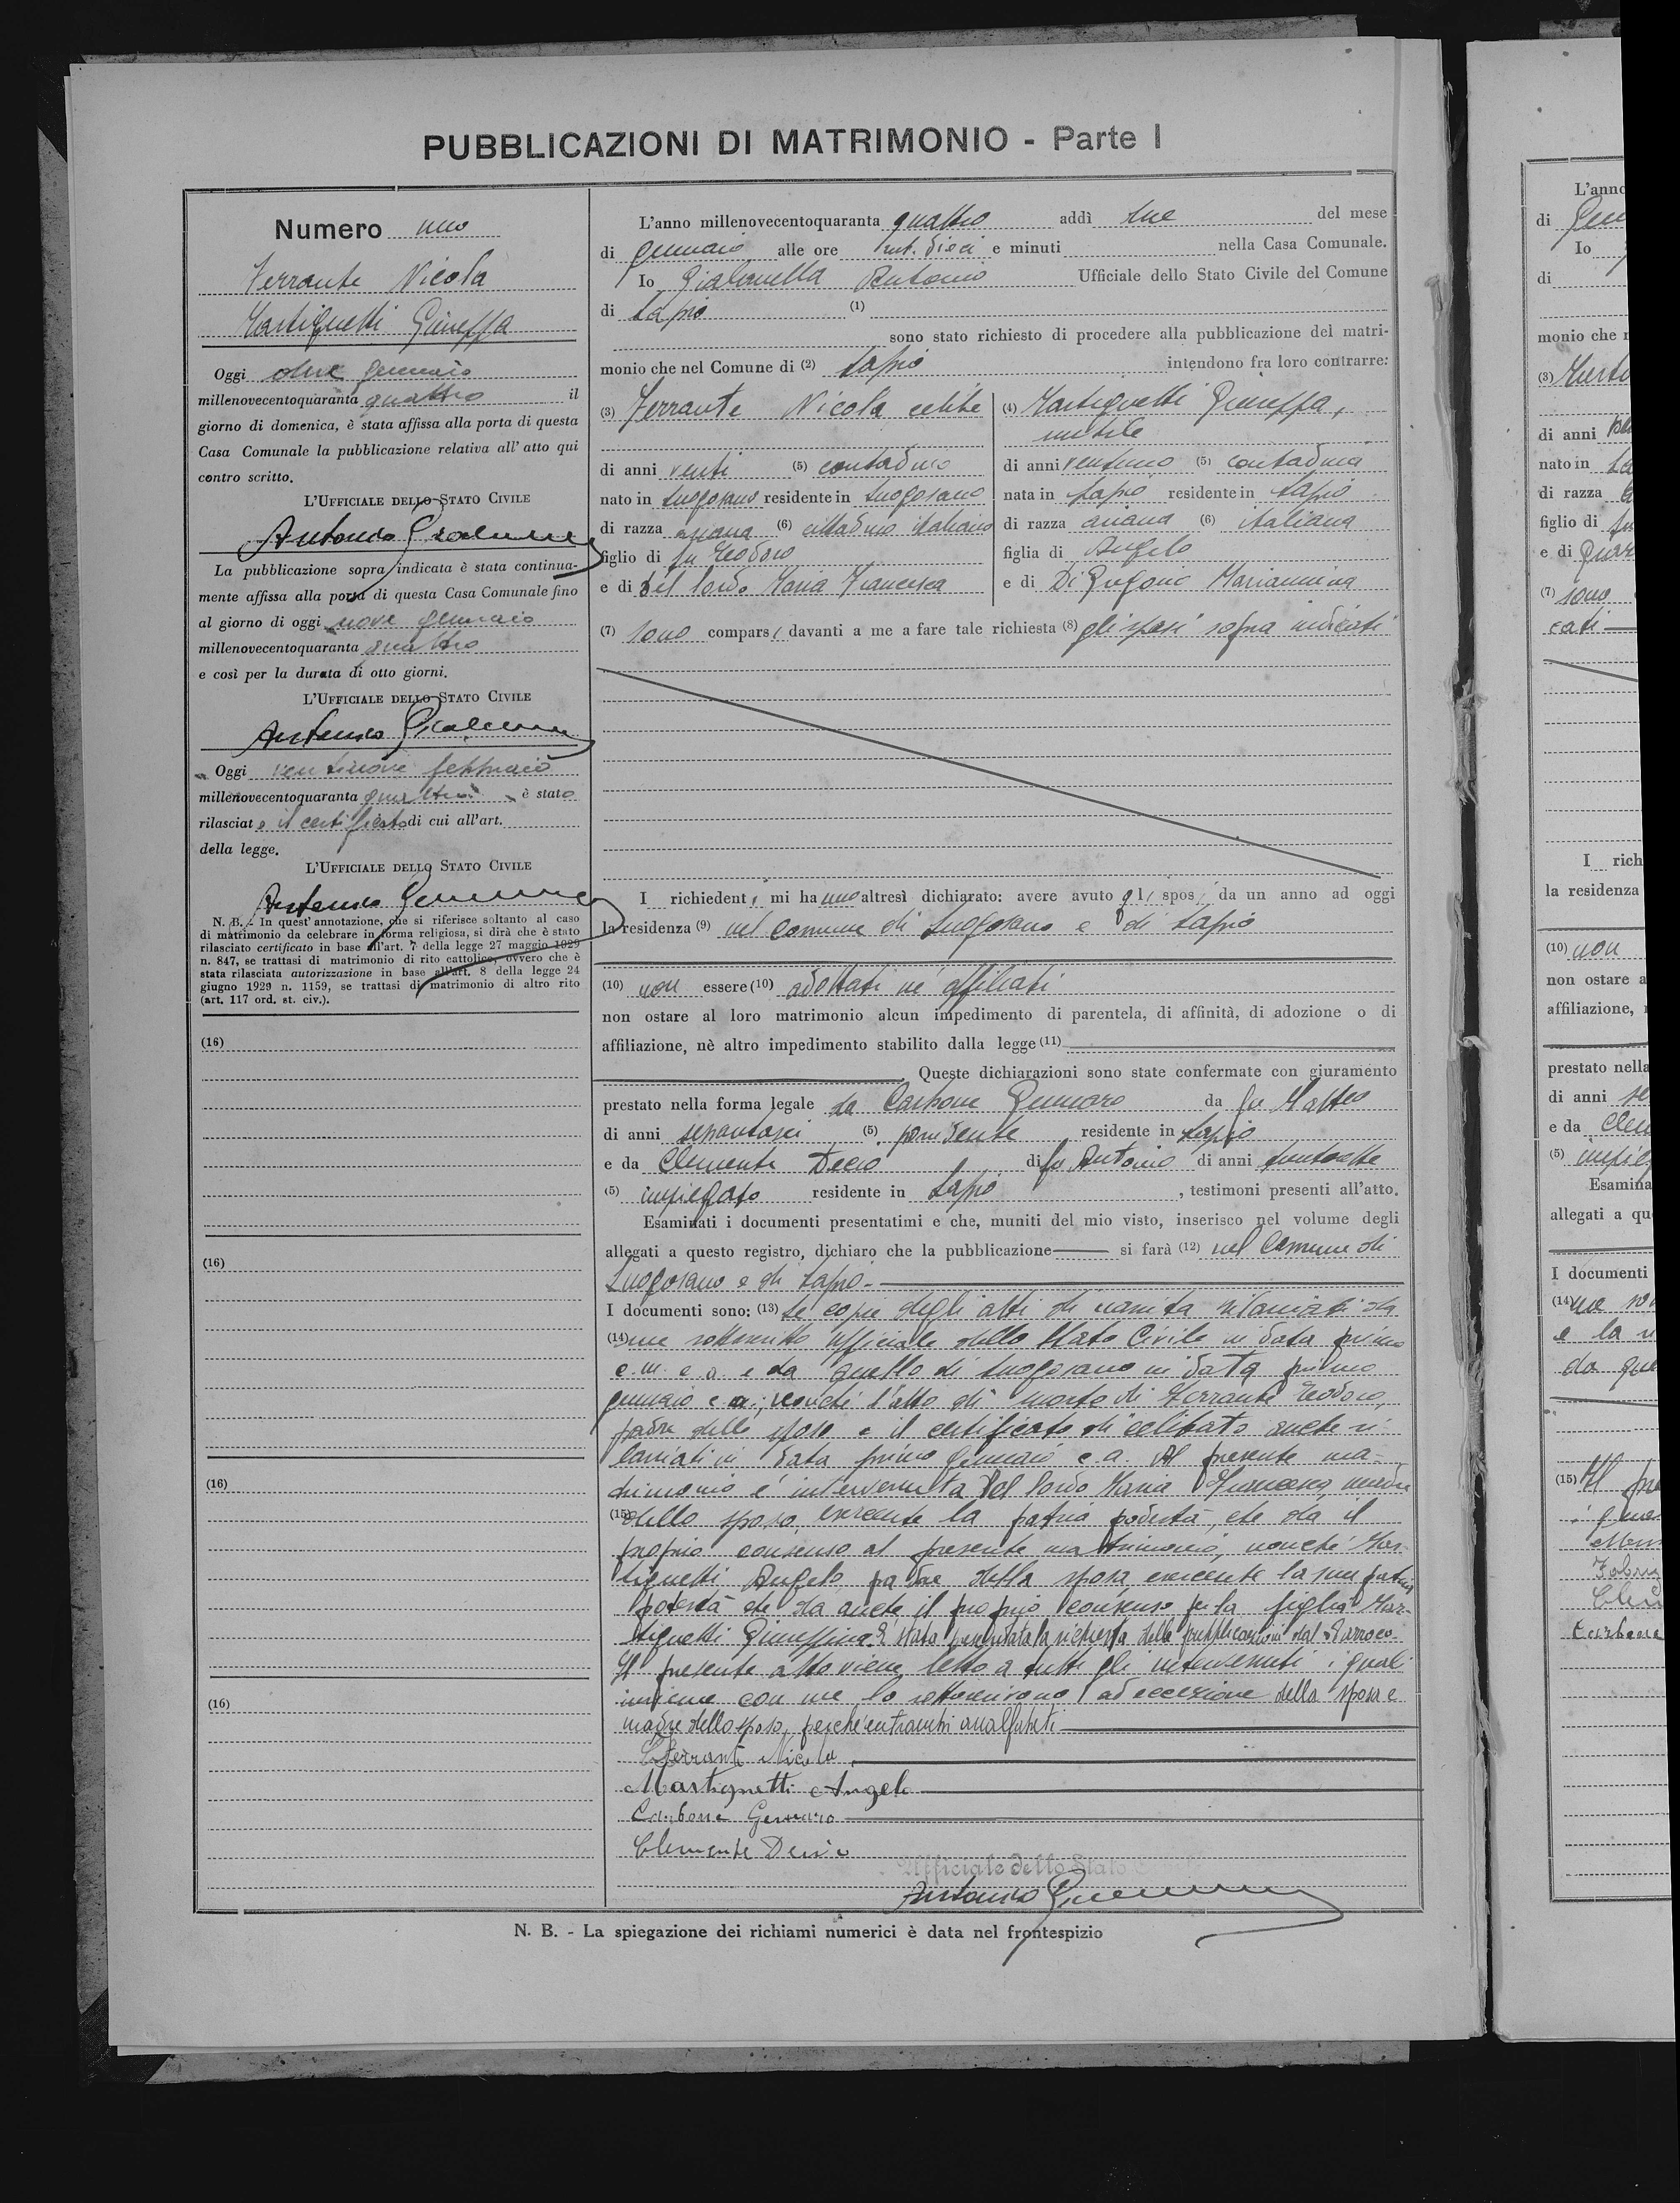 PUBBLICAZIONI DI MATRIMONIO - Parte I
Numero uno
Ferrante Nicola
Martignetti Giuseppa
Oggi due gennaio
millenovecentoquaranta quattro il
giorno di domenica, è stata affissa alla porta di questa
Casa Comunale la pubblicazione relativa all' atto qui
contro scritto.
L'UFFICIALE DELLO STATO CIVILE
Antonio
La pubblicazione sopra indicata è stata continua-
mente affissa alla porta di questa Casa Comunale fino
al giorno di oggi nove gennaio
millenovecentoquaranta quattro
e così per la durata di otto giorni.
L'UFFICIALE DELLO STATO CIVILE
Antonio
Oggi ventinove febbraio
millenovecentoquaranta quattro è stato
rilasciato il certificato di cui all'art.
della legge.
L'UFFICIALE DELLO STATO CIVILE
Antonio
N. B. - In quest'annotazione, che si riferisce soltanto al caso
di matrimonio da celebrare in forma religiosa, si dirà che è stato
rilasciato certificato in base all'art. 7 della legge 27 maggio 1929
n. 847, se trattasi di matrimonio di rito cattolico, ovvero che è
stata rilasciata autorizzazione in base all'art. 8 della legge 24
giugno 1929 n. 1159, se trattasi di matrimonio di altro rito
(art. 117 ord. st. civ.).
(16)
(16)
(16)
(16)
L'anno millenovecentoquaranta quattro addì due del mese
di gennaio alle ore ant. dieci e minuti nella Casa Comunale.
Io Gialonella Antonio Ufficiale dello Stato Civile del Comune
di Lapio (1)
sono stato richiesto di procedere alla pubblicazione del matri-
monio che nel Comune di (2) Lapio intendono fra loro contrarre:
(3) Ferrante Nicola celibe
di anni venti (5) contadino
nato in Luogosano residente in Luogosano
di razza ariana (6) cittadino italiano
figlio di fu Teodoro
e di Del Sordo Maria Francesca
(4) Martignetti Giuseppa,
nubile
di anni ventuno (5) contadina
nata in Lapio residente in Lapio
di razza ariana (6) italiana
figlia di Angelo
e di Di Gregorio Mariannina
(7) sono comparsi davanti a me a fare tale richiesta (8) gli sposi sopra indicati
I richiedenti mi hanno altresì dichiarato: avere avuto gli sposi da un anno ad oggi
la residenza (9) nel Comune di Luogosano e di Lapio
(10) non essere (10) adottati nè affiliati
non ostare al loro matrimonio alcun impedimento di parentela, di affinità, di adozione o di
affiliazione, nè altro impedimento stabilito dalla legge (11)
Queste dichiarazioni sono state confermate con giuramento
prestato nella forma legale da Carbone Gennaro da fu Matteo
di anni (5) residente in Lapio
e da Clemente Decio di fu Antonio di anni
(5) impiegato residente in Lapio, testimoni presenti all'atto.
Esaminati i documenti presentatimi e che, muniti del mio visto, inserisco nel volume degli
allegati a questo registro, dichiaro che la pubblicazione si farà (12) nel Comune di
Luogosano e di Lapio.
I documenti sono: (13) Le copie degli atti di nascita rilasciati da
(14) me sottoscritto Ufficiale dello Stato Civile in data primo
c. m. e a. e da quello di Luogosano in data primo
gennaio c. a.; nonchè l'atto di morte di Ferrante Teodoro,
padre dello sposo e il certificato di celibato anche ri-
lasciati in data primo gennaio c. a. Al presente ma-
trimonio è intervenuta Del Sordo Maria Francesca madre
(15) dello sposo, esercente la patria podestà, che da il
proprio consenso al presente matrimonio, nonchè Mar-
tignetti Angelo padre della sposa esercente la sua patria
potestà che da anche il proprio consenso per la figlia Mar-
tignetti Giuseppina. È stata presentata la richiesta della pubblicazione dal Parroco.
Il presente atto viene letto a tutti gli intervenuti i quali
insieme con me lo sottoscrivono ad eccezione della sposa e
madre dello sposo, perchè entrambi analfabeti
Ferrante Nicola
Martignetti Angelo
Carbone Gennaro
Clemente Decio
Ufficiale dello Stato
Antonio
N. B. - La spiegazione dei richiami numerici è data nel frontespizio
L'anno
di Gen
Io
di
monio che
(3)
di anni
nato in La
di razza
figlio di fu
e di
(7) sono
cati
I rich
la residenza
(10) non
non ostare a
affiliazione,
prestato nella
di anni
e da Clem
(5) impieg
Esamina
allegati a qu
I documenti
(14)
e la
da que
(15) Il pre
Carbone